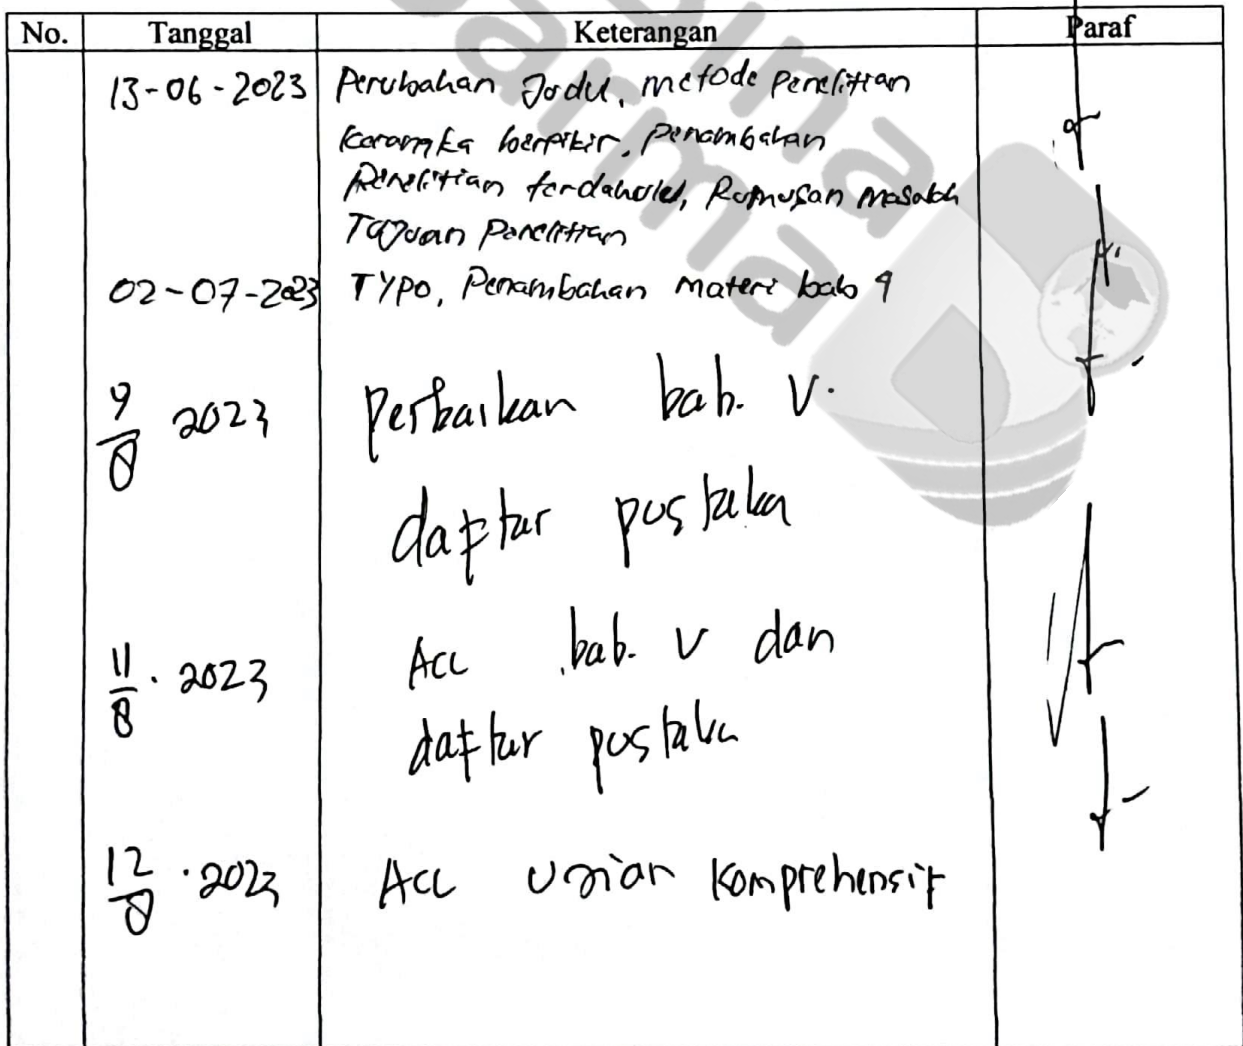 No. Tanggal Keterangan Paraf
13-06-2023 Perubahan Judul, metode Penelitian
Kerangka berpikir, Penambahan
Penelitian terdahulu, Rumusan Masalah
Tujuan Penelitian
02-07-2023 TYPO, Penambahan materi bab 4
9/8 2023 Perbaikan bab. V.
daftar pustaka
11/8 . 2023 Acc bab. V dan
daftar pustaka
12/8 . 2023 Acc Ujian Komprehensif
bina
darma